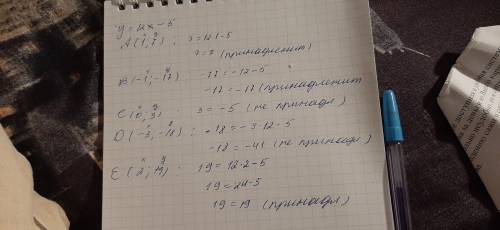 y = 12x - 5
x y
A (1; 7) : 7 = 12·1-5
7 = 7 (принадлежит)
x y
B (-1; -17) -17 = -12-5
-17 = -17 (принадлежит
x y
C (0; 3) 3 = -5 (не принадл)
x y
D (-3; -18) : -18 = -3·12-5
-18 = -41 (не принадл)
x y
E (2; 19) : 19 = 12·2-5
19 = 24-5
19 = 19 (принадл)